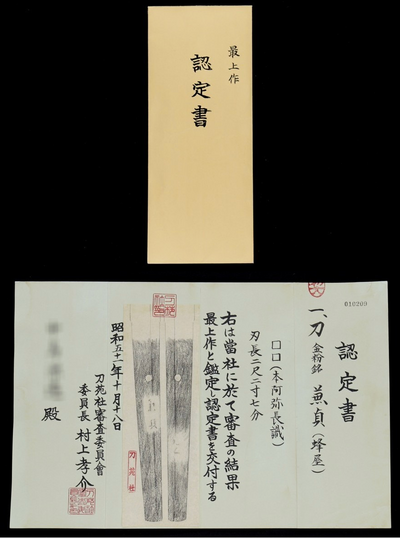 最上作
認定書
010209
認定書
一、刀 金粉銘 兼貞(蜂屋)
口口(本阿弥長識)
刃長二尺二寸七分
右は當社に於て審査の結果
最上作と鑑定し認定書を交付する
昭和五十一年十月十八日
刀苑社審査委員會
委員長 村上孝介
殿
刀苑社